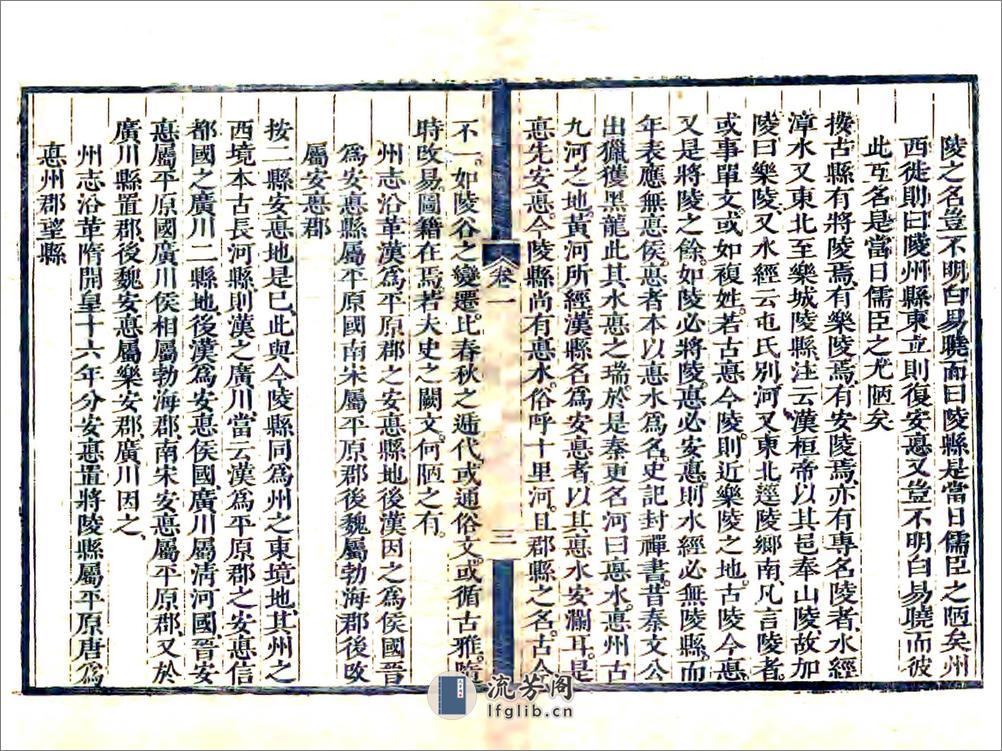 陵之名豈不明白易曉而曰陵縣是當日儒臣之陋矣州
西徙則曰陵州縣東立則復安悳又豈不明白易曉而彼
此互名是當日儒臣之尤陋矣
按古縣有將陵焉有樂陵焉有安陵焉亦有專名陵者水經
漳水又東北至樂城陵縣注云漢桓帝以其邑奉山陵故加
陵曰樂陵又水經云屯氏別河又東北逕陵鄉南凡言陵者
或事單文或如複姓若古悳今陵則近樂陵之地古陵今悳
又是將陵之餘如陵必將陵悳必安悳則水經必無陵縣而
年表應無悳侯悳者本以悳水爲名史記封禪書昔秦文公
出獵獲黑龍此其水悳之瑞於是秦更名河曰悳水悳州古
九河之地黃河所經漢縣名爲安悳者以其悳水安瀾耳是
悳先安悳今陵縣尚有悳水俗呼十里河且郡縣之名古今
卷一
三
不一如陵谷之變遷比春秋之遞代或通俗文或循古雅隨
時改易圖籍在焉若夫史之闕文何陋之有
州志沿革漢爲平原郡之安悳縣地後漢因之爲侯國晉
爲安悳縣屬平原國南宋屬平原郡後魏屬勃海郡後改
屬安悳郡
按二縣安悳地是巳此與今陵縣同爲州之東境地其州之
西境本古長河縣則漢之廣川當云漢爲平原郡之安悳信
都國之廣川二縣地後漢爲安悳侯國廣川屬淸河國晉安
悳屬平原國廣川侯相屬勃海郡南宋安悳屬平原郡又於
廣川縣置郡後魏安悳屬樂安郡廣川因之
州志沿革隋開皇十六年分安悳置將陵縣屬平原唐爲
悳州郡望縣
流芳阁
lfglib.cn